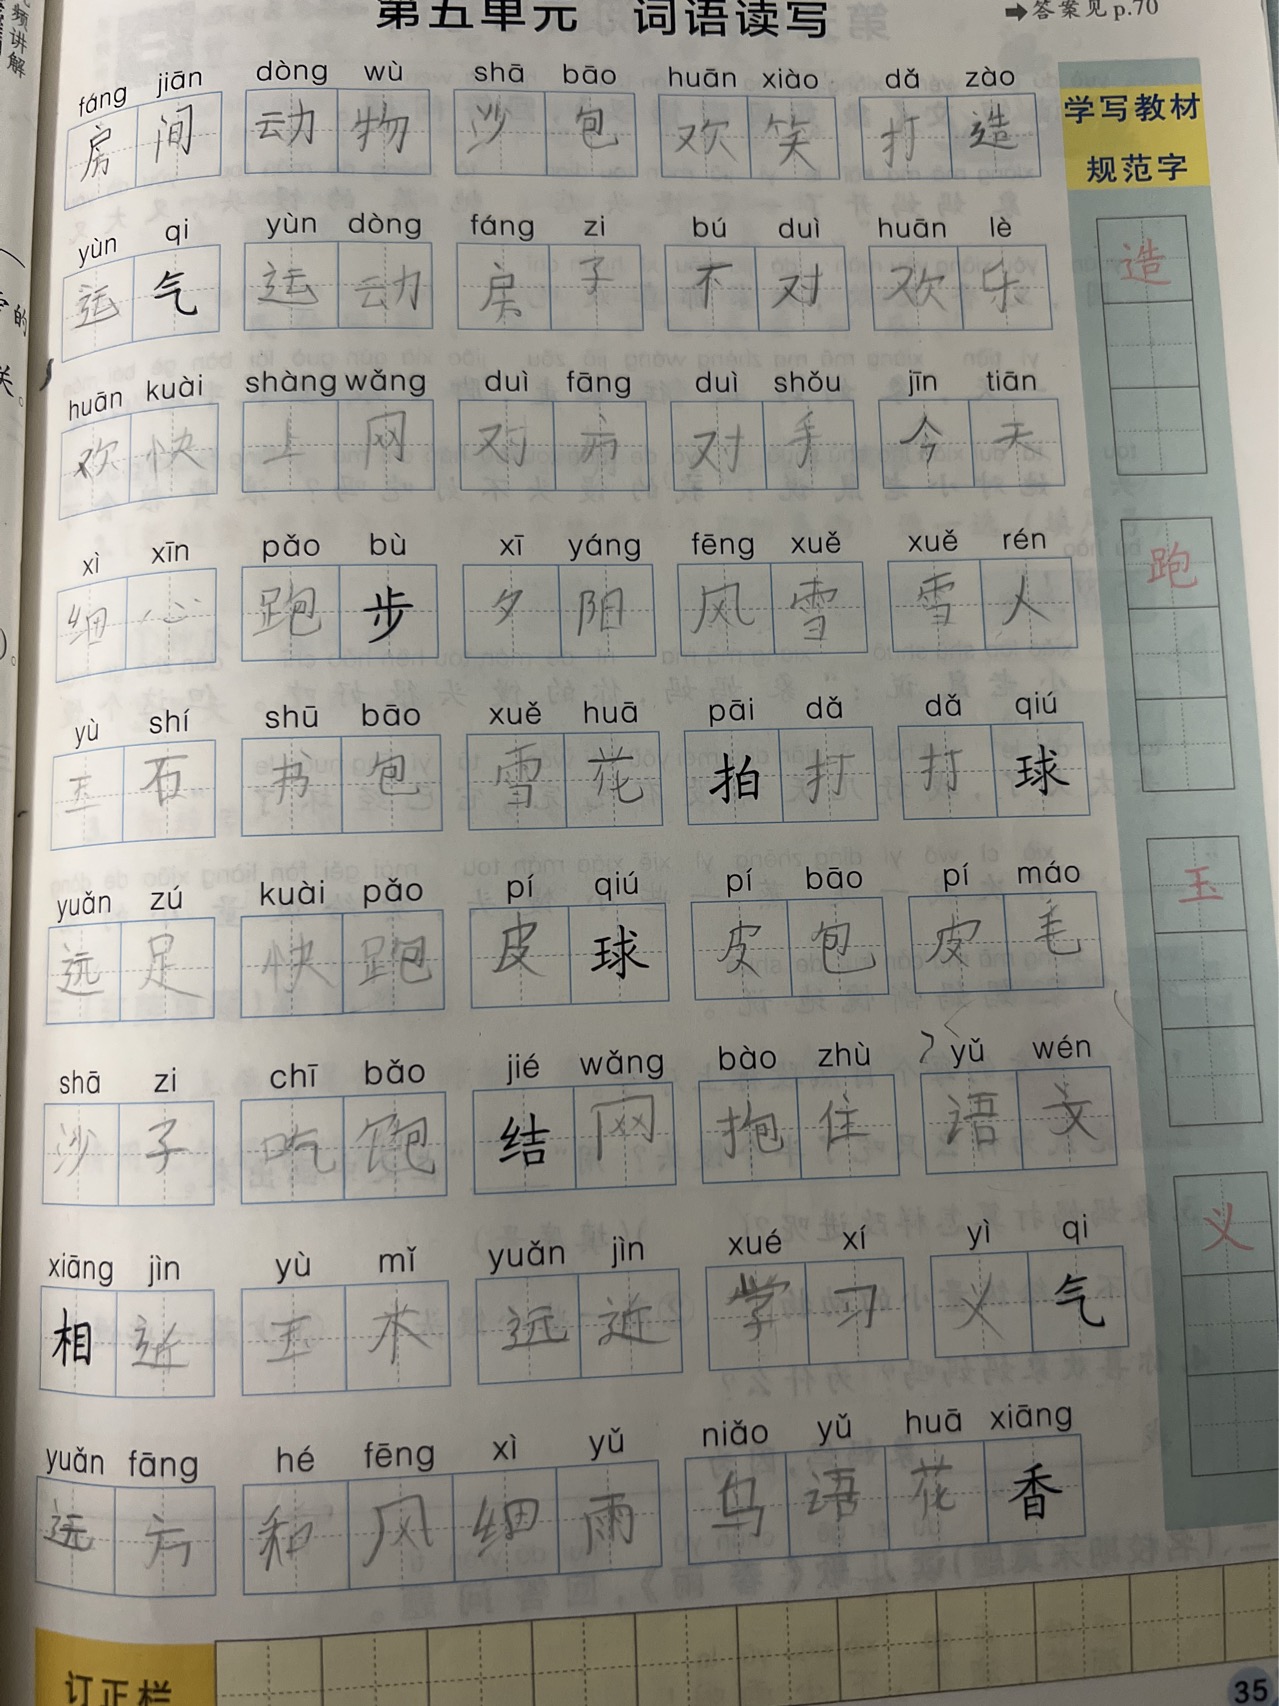 第五单元 词语读写
➡答案见p.70
频讲解
fáng jiān dòng wù shā bāo huān xiào dǎ zào
房间 动物 沙包 欢笑 打造
学写教材
规范字
yùn qi yùn dòng fáng zi bú duì huān lè
运气 运动 房子 不对 欢乐
造
huān kuài shàng wǎng duì fāng duì shǒu jīn tiān
欢快 上网 对方 对手 今天
xì xīn pǎo bù xī yáng fēng xuě xuě rén
细心 跑步 夕阳 风雪 雪人
跑
yù shí shū bāo xuě huā pāi dǎ dǎ qiú
玉石 书包 雪花 拍打 打球
yuǎn zú kuài pǎo pí qiú pí bāo pí máo
远足 快跑 皮球 皮包 皮毛
玉
shā zi chī bǎo jié wǎng bào zhù yǔ wén
沙子 吃饱 结网 抱住 语文
xiāng jìn yù mǐ yuǎn jìn xué xí yì qi
相近 玉米 远近 学习 义气
义
yuǎn fāng hé fēng xì yǔ niǎo yǔ huā xiāng
远方 和风细雨 鸟语花香
订正栏
35